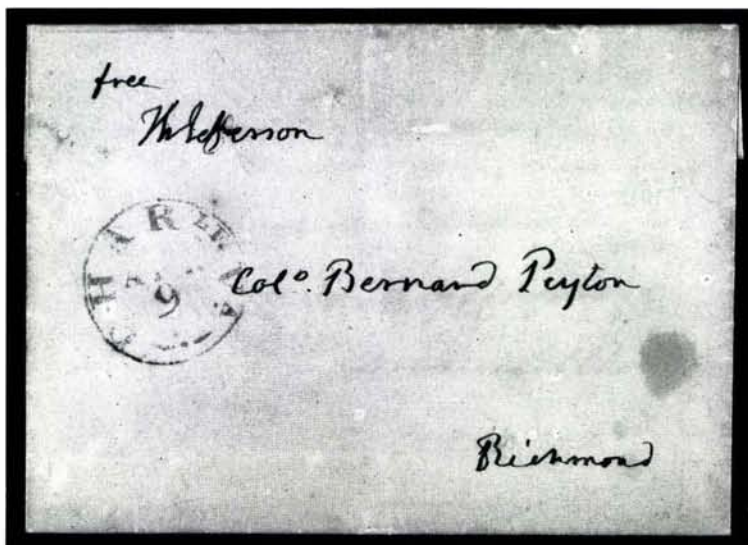 free
Th Jefferson
CHAR
9
Colo. Bernard Peyton
Richmond